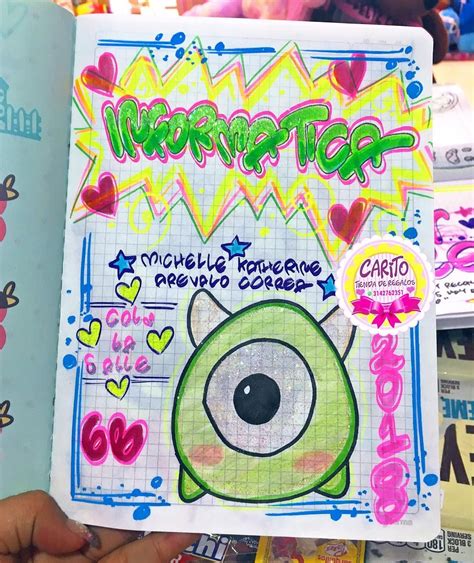 INFORMATICA
MICHELLE KATHERINE
AREVALO CORREA
COLG
LA
SALLE
6B
2018
CARITO
TIENDA DE REGALOS
3142762351